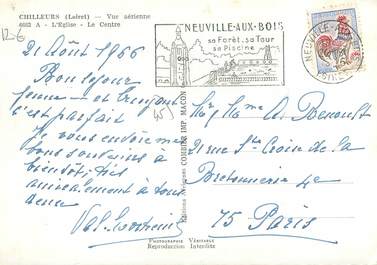 CHILLEURS (Loiret) — Vue aérienne
6682 A - L'Eglise - Le Centre
12-6
NEUVILLE-AUX-BOIS
sa Forêt, sa Tour
sa Piscine
NEUVILLE-
LOIRET
21 Août 1966
Bon séjour
et
c'est parfait
Je vous envoie mes
bons souvenirs à
bientôt, très
amicalement à tous
deux
45
Editions Aériennes COMBIER IMP. MACON
Mr Mme A. Renoust
21 rue Ste Croix de la
Bretonnerie 4e
75 Paris
PHOTOGRAPHIE VÉRITABLE
Reproduction Interdite